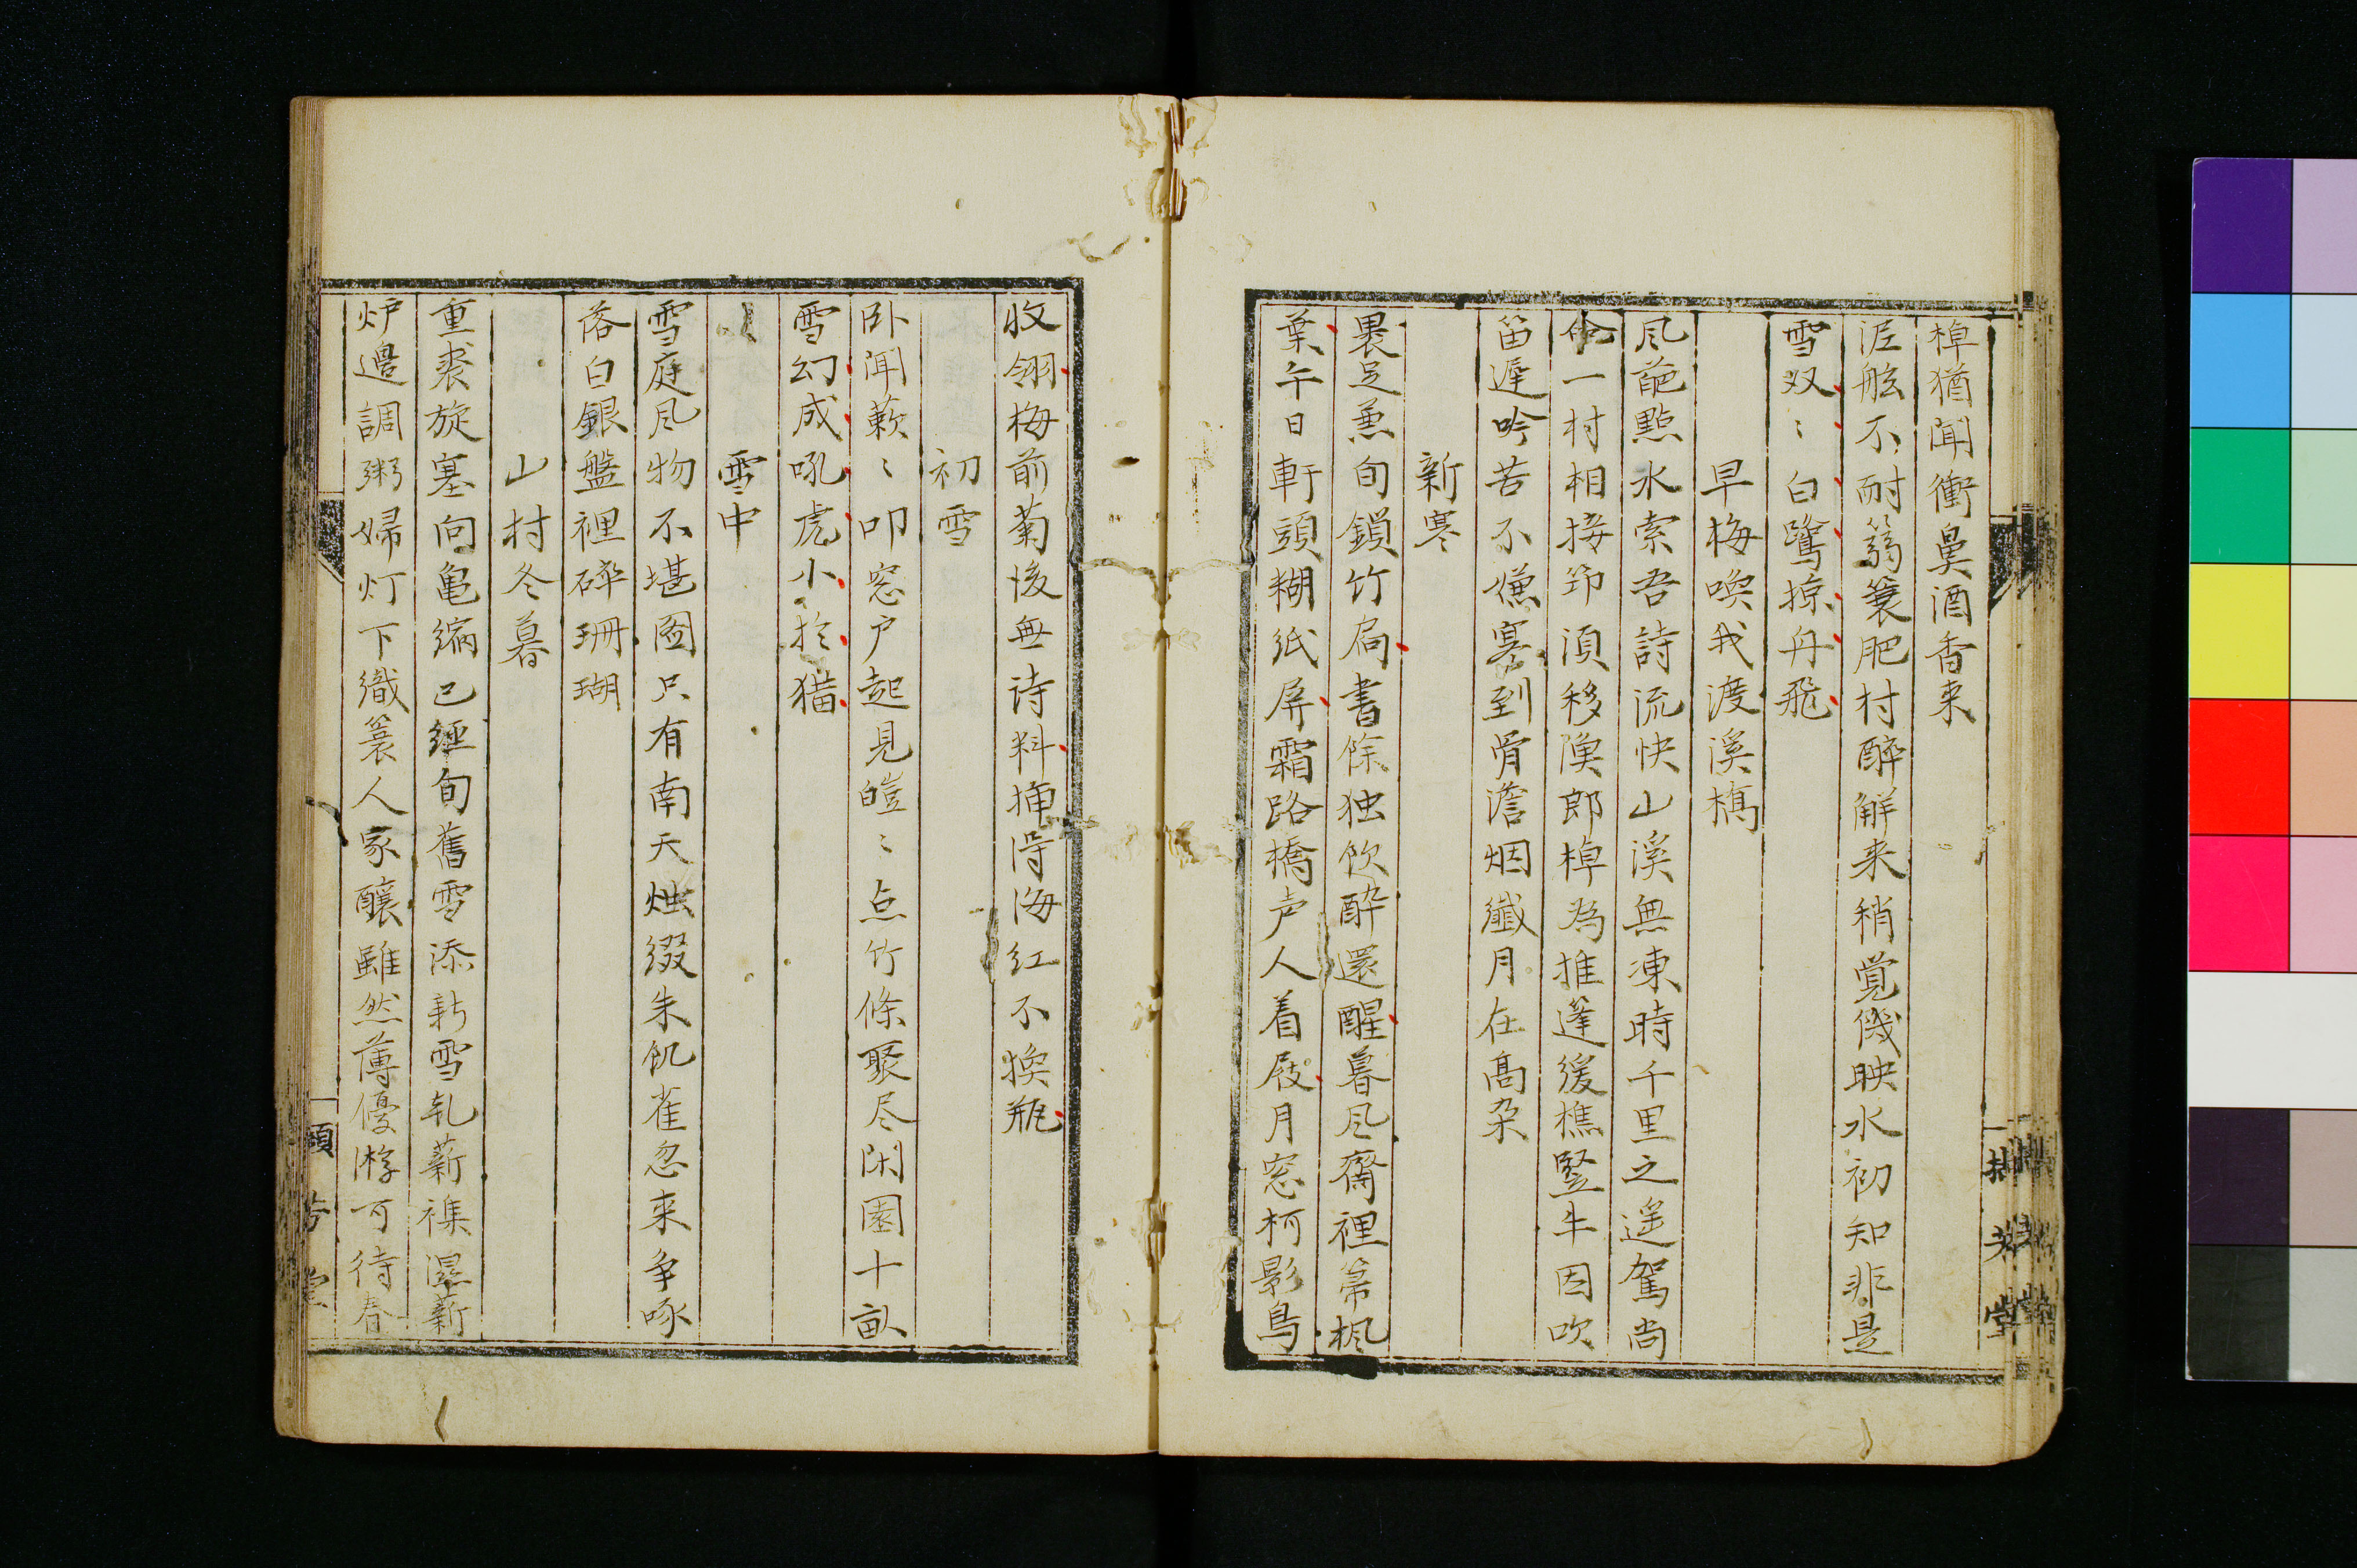 棹猶聞衝鼻酒香来
泥舷不耐篛簑肥村酔解来稍覚俄映水初知非是
雪双〻白鷺掠舟飛
早梅喚我渡溪橋
风葩點水索吾詩流快山溪無凍時千里之遥駕尚
一村相接笻須移漁郎棹為推蓬緩樵竪牛因吹
笛遅吟苦不嫌寒到骨澹烟纖月在髙朶
新寒
裹足兼旬鎖竹扃書餘独飲酔還醒暮风齋裡箒楓
葉午日軒頭糊紙屏霜路橋声人着屐月窓柯影鳥
收翎梅前菊後無诗料挿得海红不換瓶
初雪
卧聞蔌〻叩窓户起見皚〻点竹條聚尽闲園十畝
雪幻成吼虎小於猫
雪中
雪庭风物不堪图只有南天烛缀朱飢雀忽来争啄
落白銀盤裡碎珊瑚
山村冬暮
重裘旋塞向亀縮已經旬舊雪添新雪乳薪襍湿薪
炉邉調粥婦灯下織簑人家釀雖然薄優游可待春